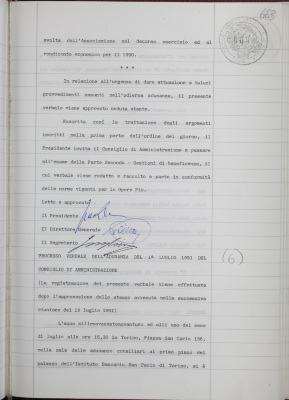 svolta dall'Associazione nel decorso esercizio ed al
rendiconto economico per il 1990.
* * *
In relazione all'urgenza di dare attuazione a taluni
provvedimenti assunti nell'odierna adunanza, il presente
verbale viene approvato seduta stante.
Esaurita così la trattazione degli argomenti
inscritti nella prima parte dell'ordine del giorno, il
Presidente invita il Consiglio di Amministrazione a passare
all'esame della Parte Seconda - Gestioni di beneficenza, il
cui verbale viene redatto e raccolto a parte in conformità
delle norme vigenti per le Opere Pie.
Letto e approvato
Il Presidente
Il Direttore Generale
Il Segretario
PROCESSO VERBALE DELL'ADUNANZA DEL 1° LUGLIO 1991 DEL
(6)
CONSIGLIO DI AMMINISTRAZIONE
(la registrazione del presente verbale viene effettuata
dopo l'approvazione dello stesso avvenuta nella successiva
riunione del 15 luglio 1991)
L'anno millenovecentonovantuno, ed alli uno del mese
di luglio alle ore 15,30 in Torino, Piazza San Carlo 156,
nella sala delle adunanze consiliari al primo piano del
palazzo dell'Istituto Bancario San Paolo di Torino, si è